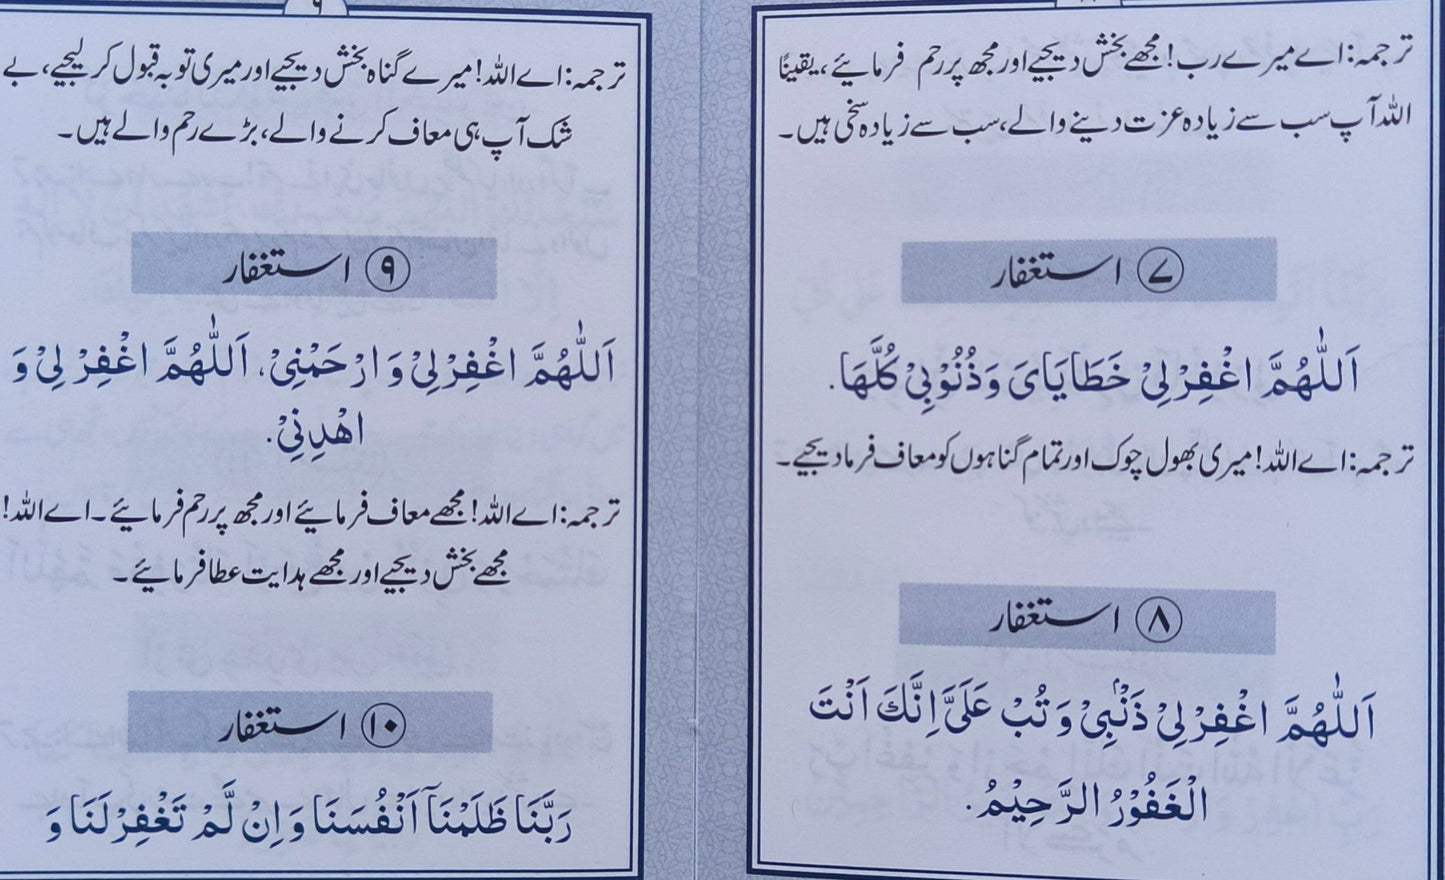 ترجمہ: اے میرے رب! مجھے بخش دیجیے اور مجھ پر رحم فرمائیے، یقینًا
اللہ آپ سب سے زیادہ عزت دینے والے، سب سے زیادہ سخی ہیں۔
۷ استغفار
اَللّٰهُمَّ اغْفِرْ لِیْ خَطَایَایَ وَذُنُوْبِیْ كُلَّهَا.
ترجمہ: اے اللہ! میری بھول چوک اور تمام گناہوں کو معاف فرما دیجیے۔
۸ استغفار
اَللّٰهُمَّ اغْفِرْ لِیْ ذَنْۢبِیْ وَ تُبْ عَلَیَّ اِنَّكَ اَنْتَ
الْغَفُوْرُ الرَّحِیْمُ.
۹
ترجمہ: اے اللہ! میرے گناہ بخش دیجیے اور میری توبہ قبول کر لیجیے، بے
شک آپ ہی معاف کرنے والے، بڑے رحم والے ہیں۔
۹ استغفار
اَللّٰهُمَّ اغْفِرْ لِیْ وَ ارْحَمْنِیْ، اَللّٰهُمَّ اغْفِرْ لِیْ وَ
اهْدِنِیْ.
ترجمہ: اے اللہ! مجھے معاف فرمائیے اور مجھ پر رحم فرمائیے۔ اے اللہ!
مجھے بخش دیجیے اور مجھے ہدایت عطا فرمائیے۔
۱۰ استغفار
رَبَّنَا ظَلَمْنَاۤ اَنْفُسَنَا وَ اِنْ لَّمْ تَغْفِرْ لَنَا وَ